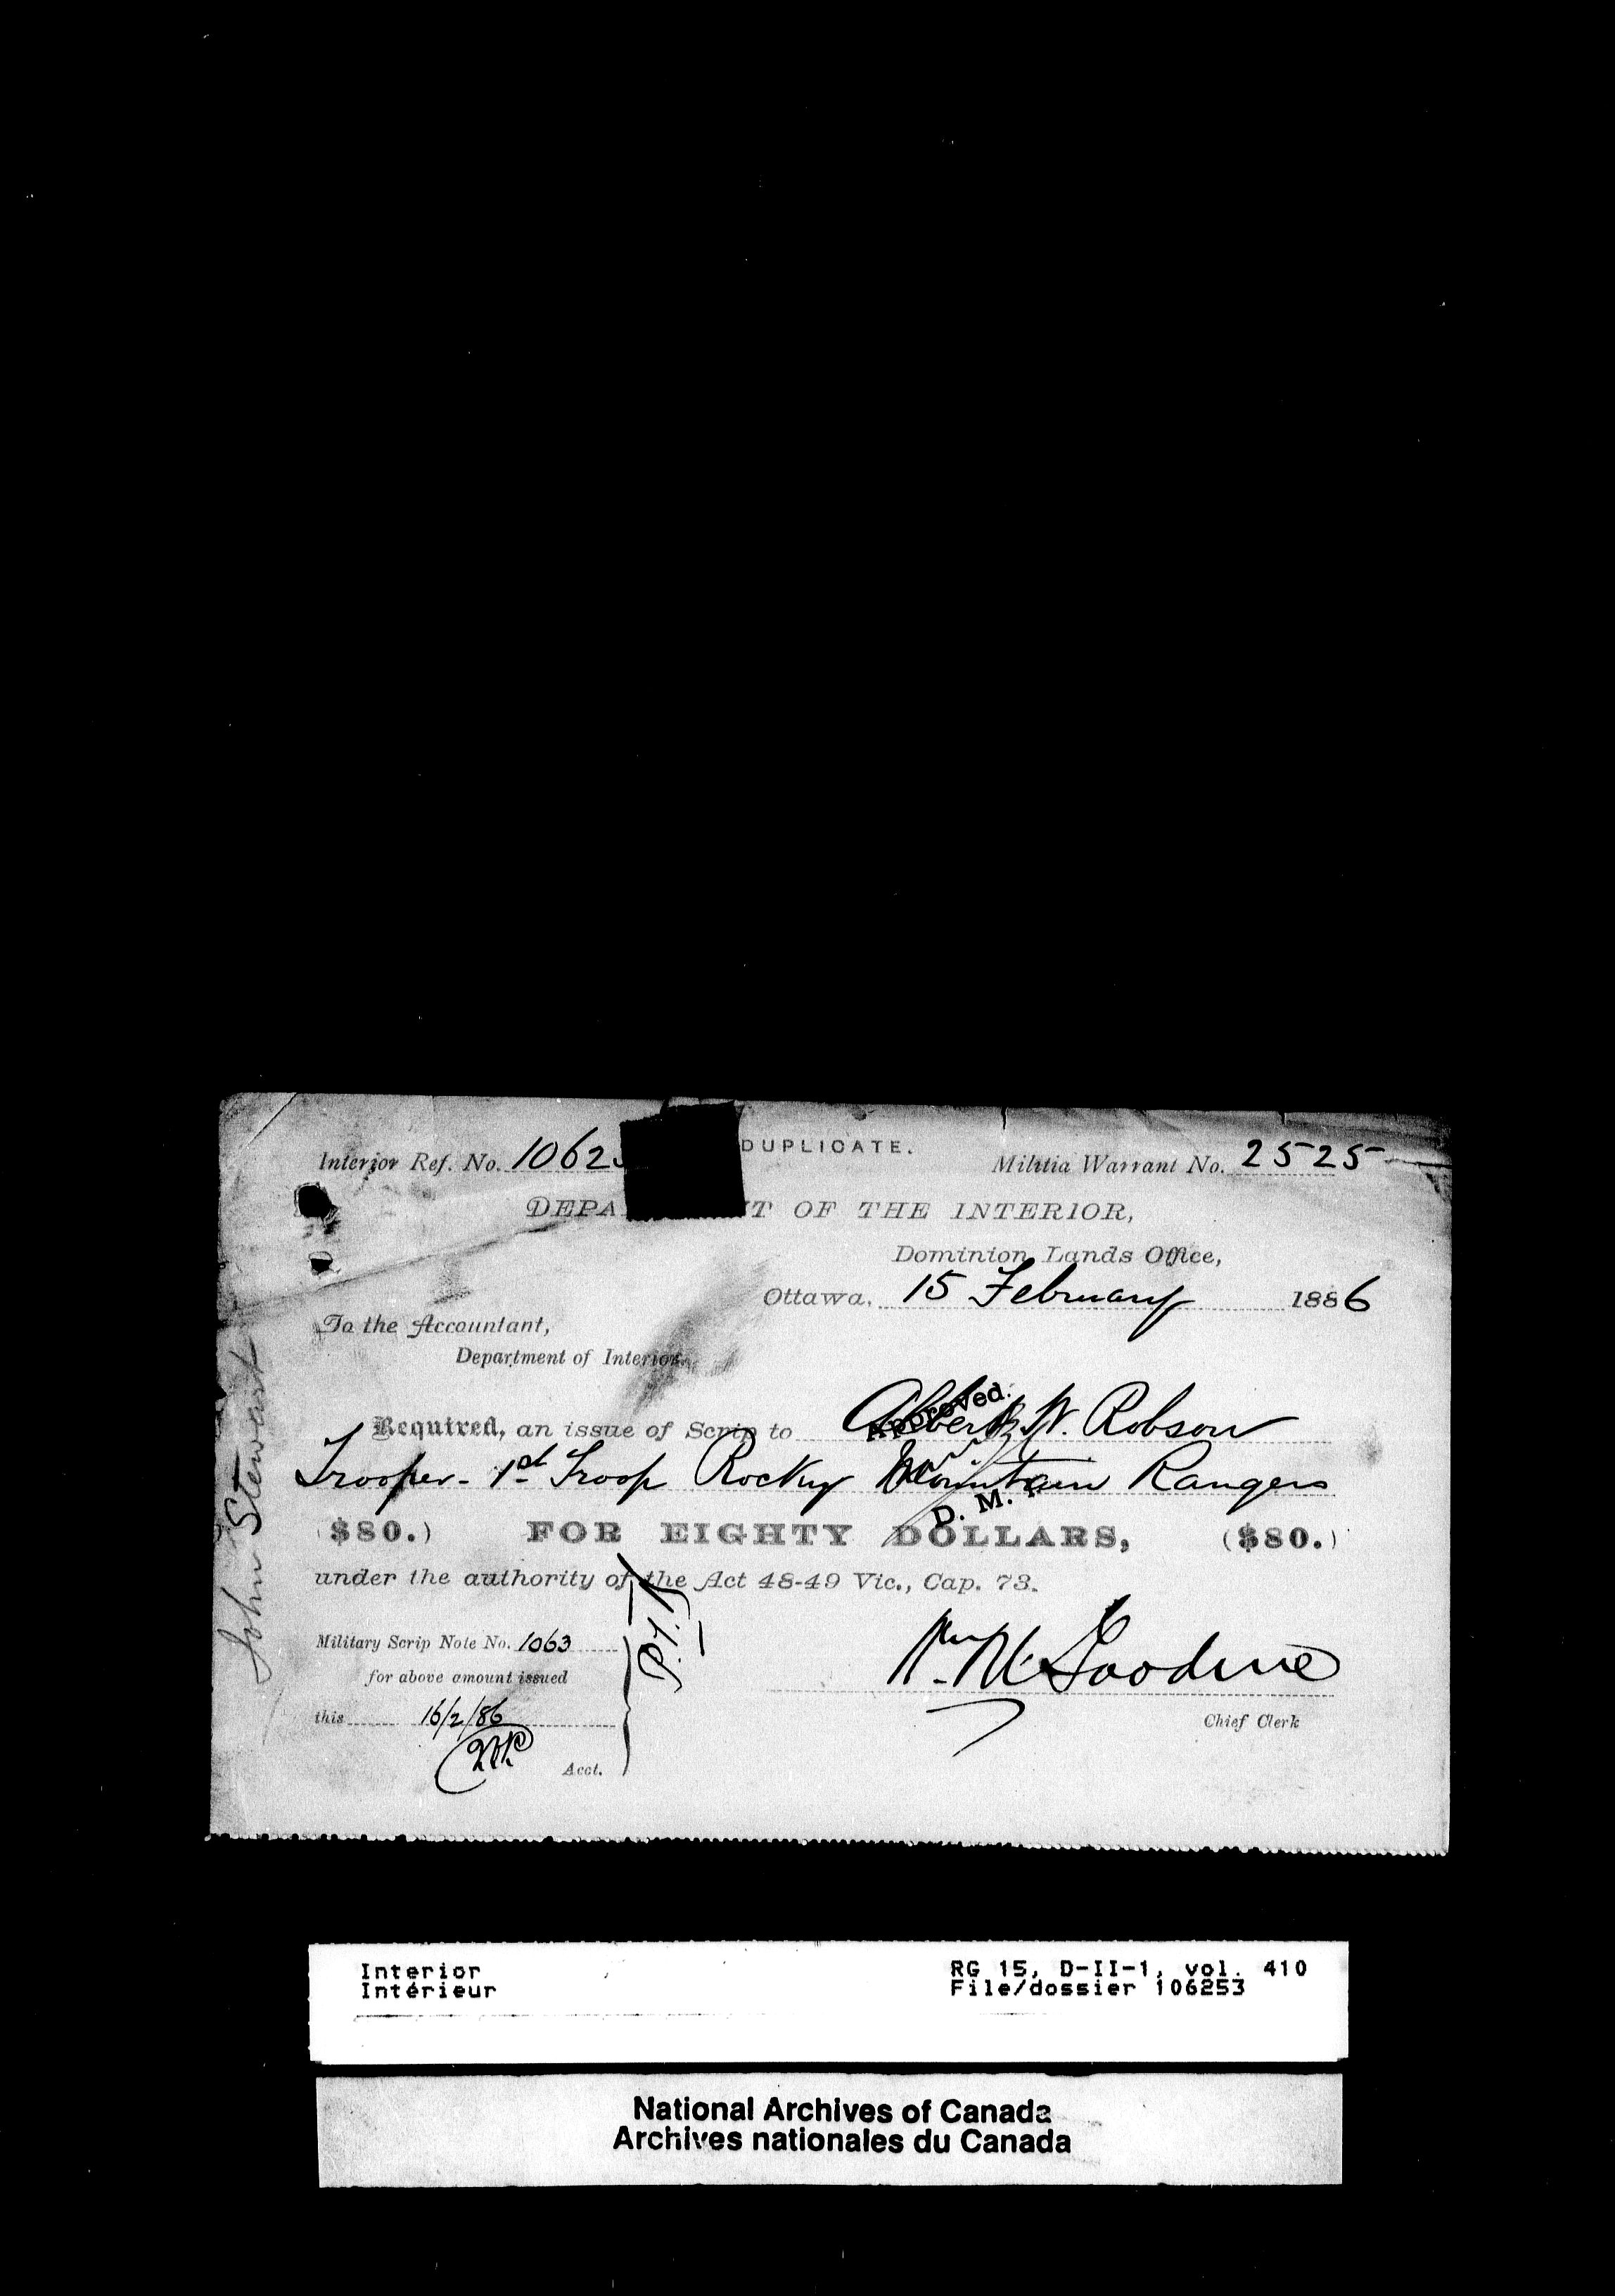 DUPLICATE.
Interior Ref. No. 1062
Militia Warrant No. 2525
DEPA T OF THE INTERIOR,
Dominion Lands Office,
Ottawa, 15 February 1886
To the Accountant,
Department of Interior.
Required, an issue of Scrip to Albert W. Robson
Approved.
Trooper - 1st Troop Rocky Mountain Rangers
D. M.
($80.) FOR EIGHTY DOLLARS, ($80.)
under the authority of the Act 48-49 Vic., Cap. 73.
Military Scrip Note No. 1063
for above amount issued
this 16/2/86
Acct.
Chief Clerk
John Stewart
Interior
Intérieur
RG 15, D-II-1, vol. 410
File/dossier 106253
National Archives of Canada
Archives nationales du Canada